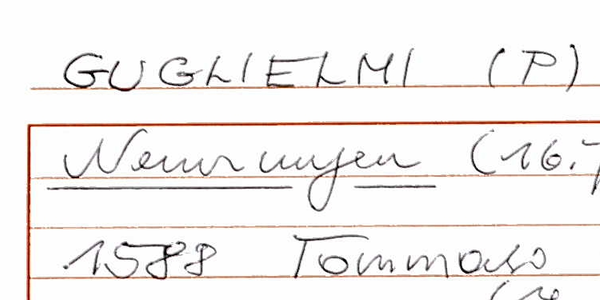 GUGLIELMI (P)
Nennungen (16.
1588 Tommaso